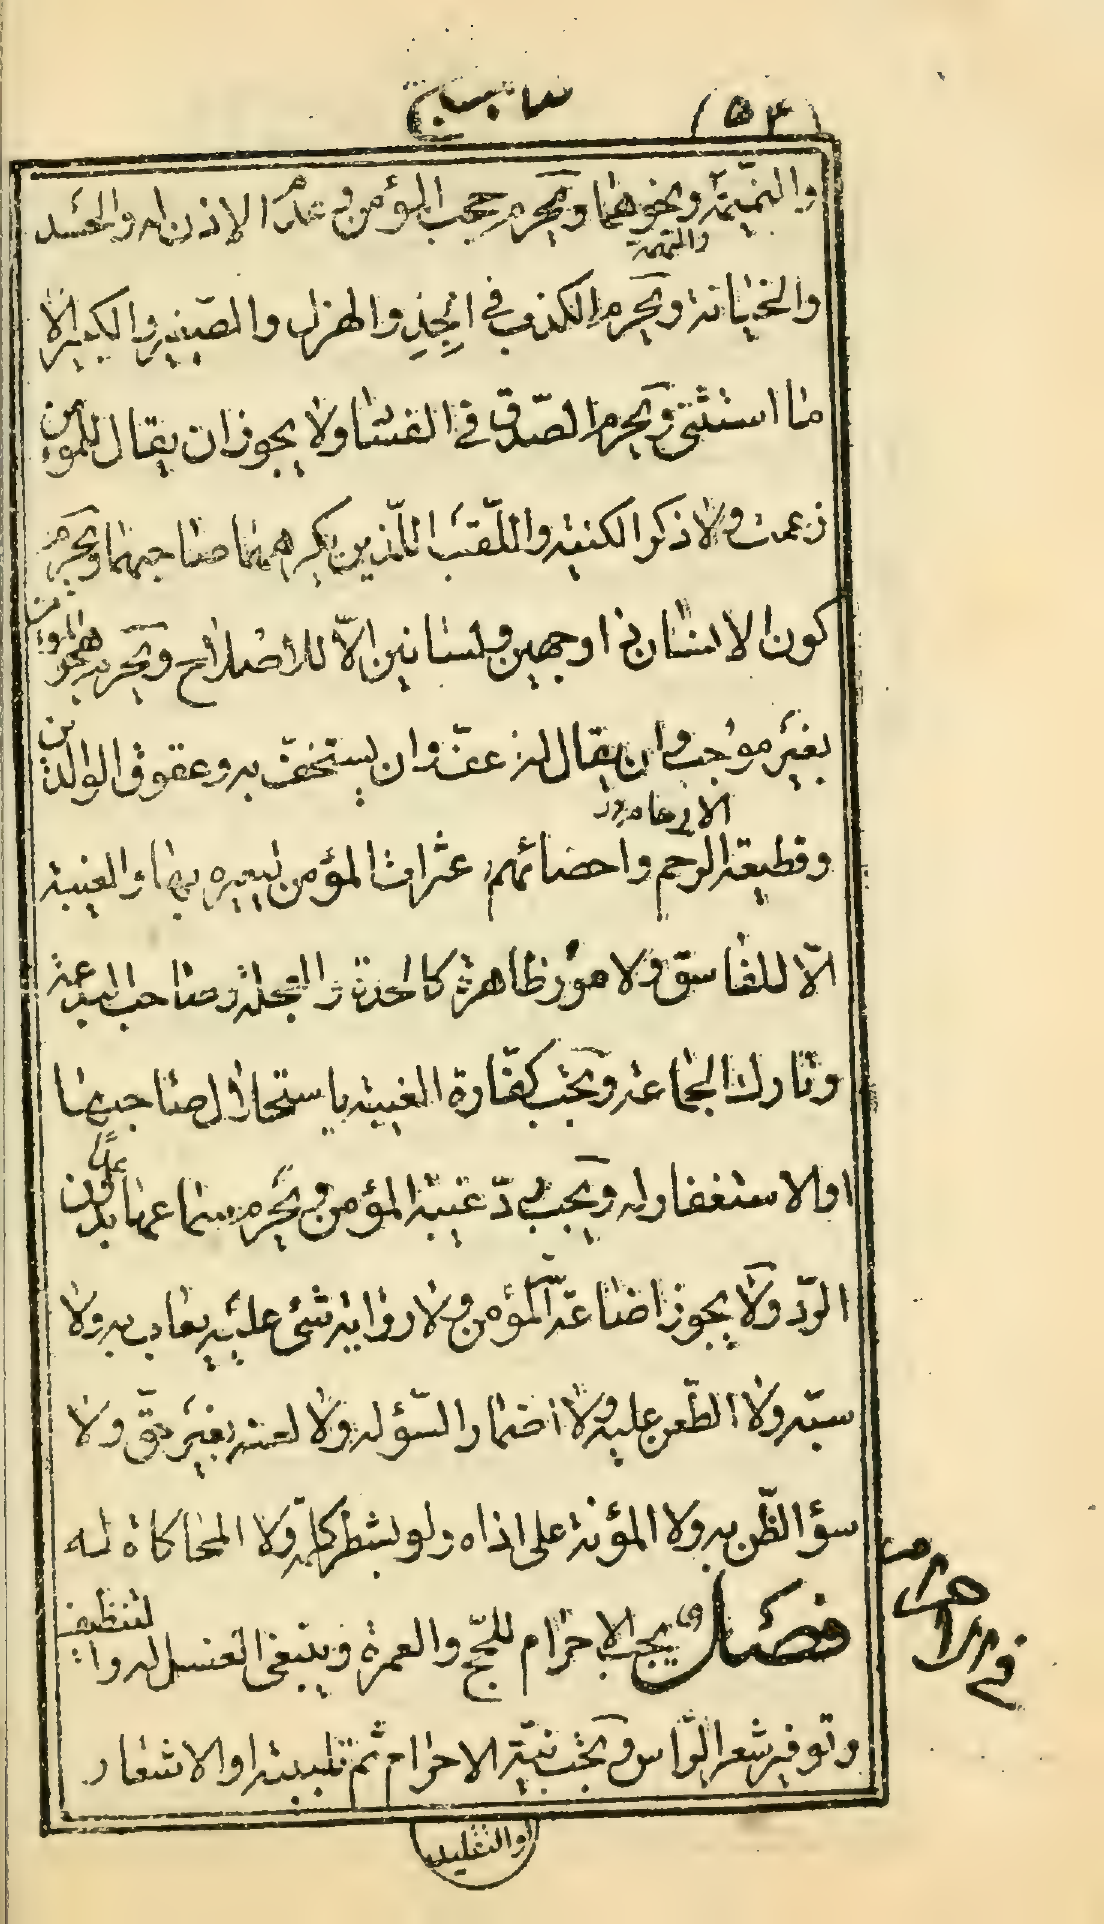 (٥٤)
والنميمة ونحوهما ويحرم حجب المؤمن وعدم الاذن له والحسد
والتهمة
والخيانة ويحرم الكذب في الجد والهزل والصغير والكبير الا
ما استثني ويحرم الصدق في الفساد ولا يجوز ان يقال للمؤمن
زعمت ولا ذكر الكنية واللقب اللذين يكرههما صاحبهما ويحرم
كون الانسان ذا وجهين ولسانين الّا للاصلاح ويحرم هجو المؤمن
بغير موجب وان يقال له عفّ وان يستخفّ به وعقوق الوالدين
وقطيعة الرحم واحصائهم عثرات المؤمن ليعيره بها والغيبة
الّا للفاسق ولامور ظاهرة كالحدة والعجلة وصاحب البدعة
وتارك الجماعة ويجب كفّارة الغيبة باستحلال صاحبها
او الاستغفار له ويجب ردّ غيبة المؤمن ويحرم سماعها بدون
الردّ ولا يجوز اضاعة المؤمن ولا رواية شئ عليه يعاب به ولا
سبّه ولا الطّعن عليه ولا اضمار السّؤ له ولا لعنه بغير حقّ ولا
سؤ الظّن به ولا المؤنة على اذاه ولو بشطر كلمة ولا المحاكاة له
فصل يجب الاحرام للحّج والعمرة وينبغي الغسل له والتنظيف
في الاحرام
وتوفير شعر الرّاس ويجب نيّة الاحرام ثم تلبيته او الاشعار
او التقليد